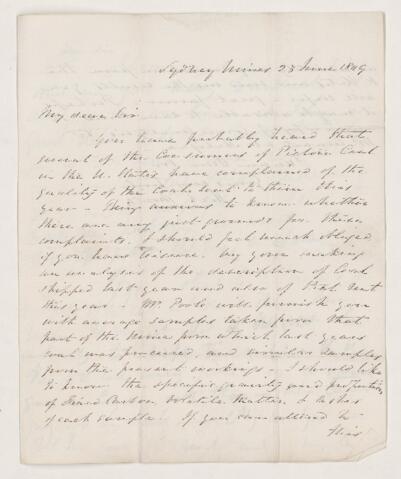 Sydney Mines 23 June 1849
My dear Sir
You have probably heard that
several of the Consumers of Pictou Coal
in the U. States have complained of the
quality of the Coals sent to them this
year - Being anxious to know whether
there are any just grounds for these
complaints, I should feel much obliged
if you have leisure by your making
an analysis of the description of Coal
shipped last year and also of that sent
this year - Mr. Poole will furnish you
with average samples taken from that
part of the Mine from which last years
coal was procured, and similar samples
from the present workings - I should like
to know the specific gravity and proportion
of Fixed Carbon Volatile Matter, & ashes
of each sample. If you can attend to
this